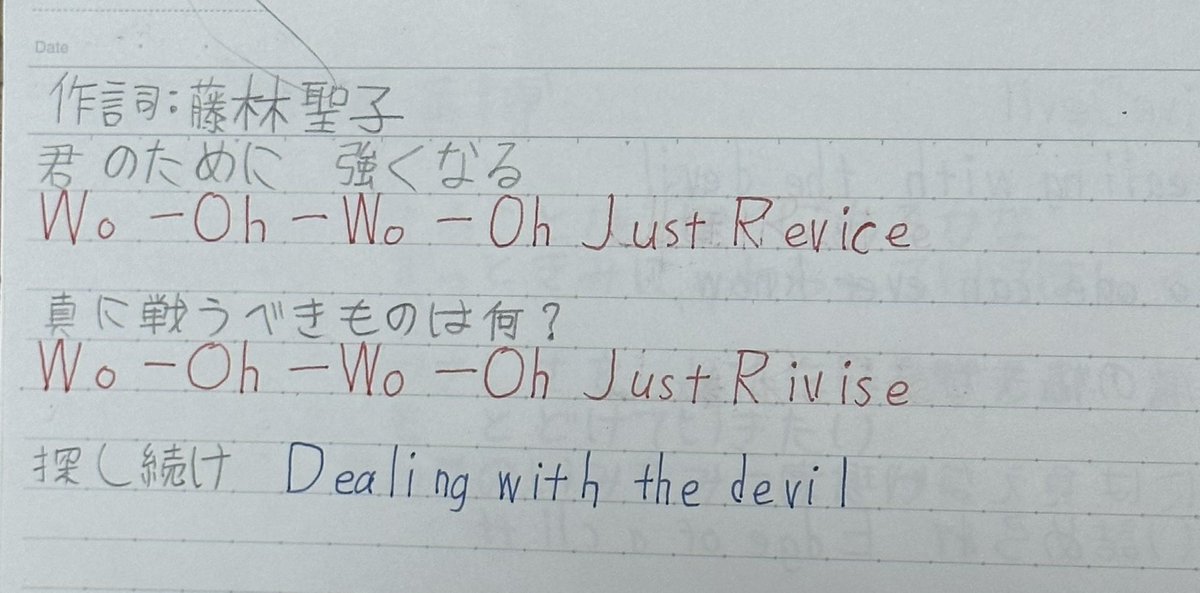 Date
作詞:藤林聖子
君のために 強くなる
Wo-Oh-Wo-Oh Just Revice
真に戦うべきものは何?
Wo-Oh-Wo-Oh Just Rivise
探し続け Dealing with the devil